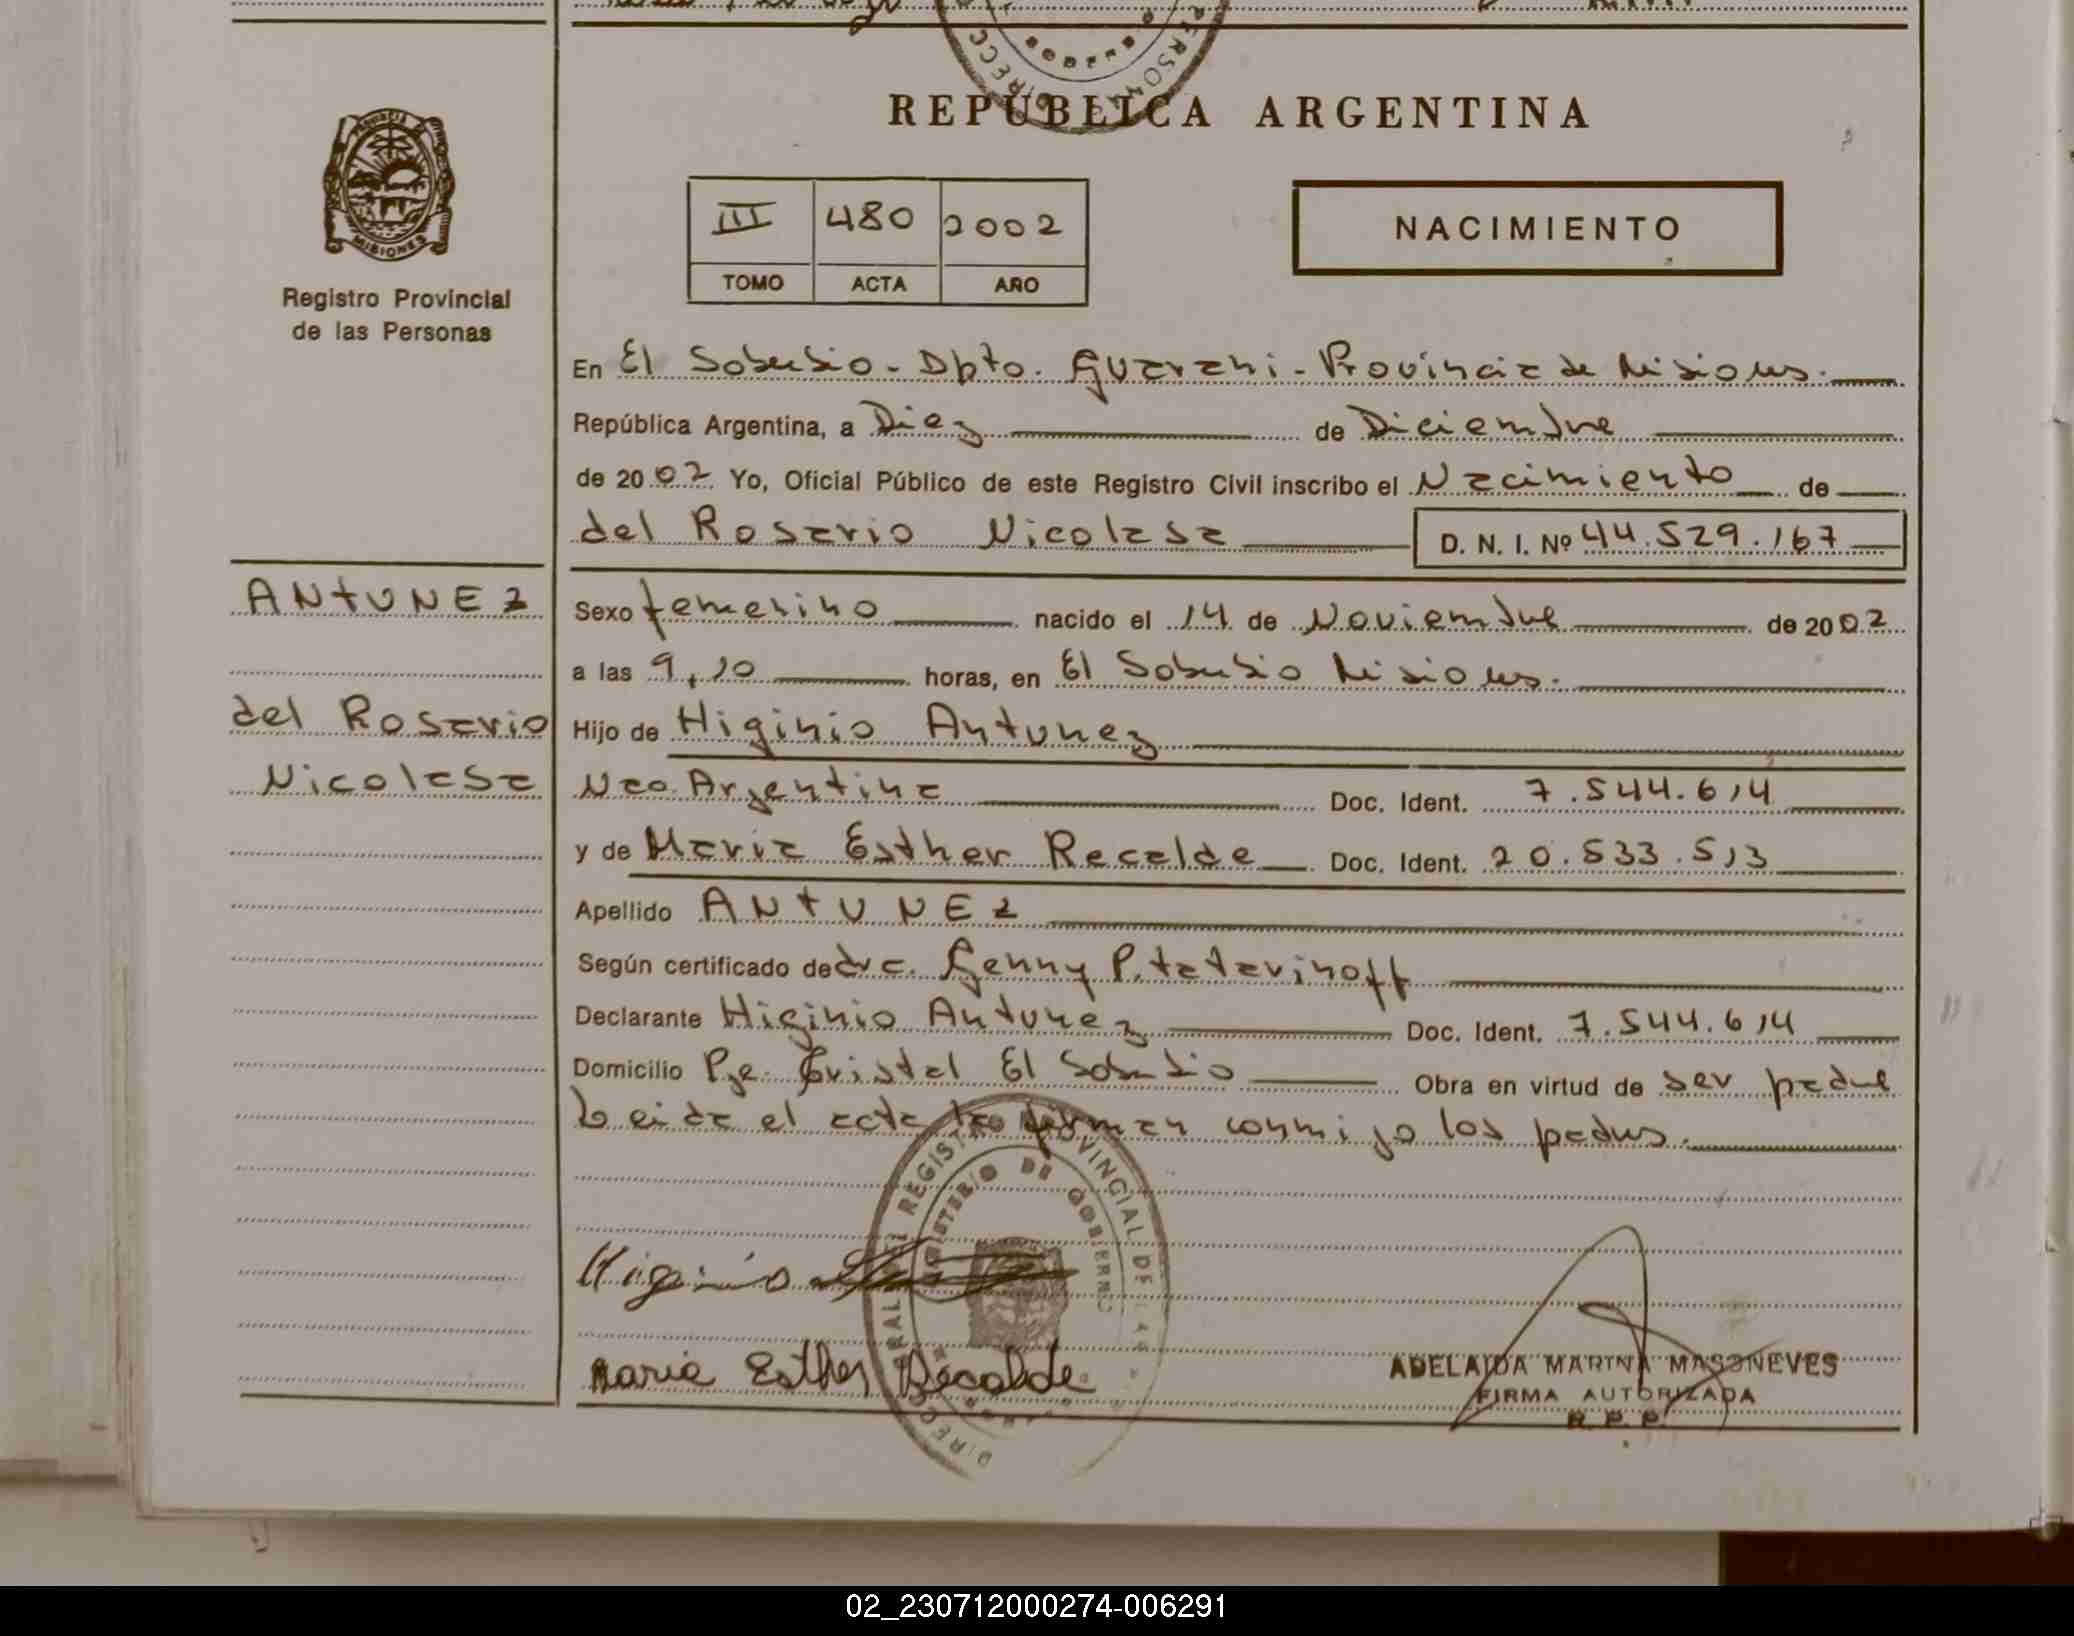 REPÚBLICA ARGENTINA
PROVINCIA DE
MISIONES
Registro Provincial
de las Personas
III 480 2002
TOMO ACTA AÑO
NACIMIENTO
En El Soberbio - Dpto. Guarani - Provincia de Misiones.
República Argentina, a Diez de Diciembre
de 2002 Yo, Oficial Público de este Registro Civil inscribo el Nacimiento de
del Rosario Nicolasa D. N. I. Nº 44.529.167
ANTUNEZ
del Rosario
Nicolasa
Sexo femenino nacido el 14 de Noviembre de 2002
a las 9,10 horas, en El Soberbio Misiones.
Hijo de Higinio Antunez
Nac. Argentina Doc. Ident. 7.544.614
y de Maria Esther Recalde Doc. Ident. 20.533.513
Apellido ANTUNEZ
Según certificado de dra. Genny P. tatarinoff
Declarante Higinio Antunez Doc. Ident. 7.544.614
Domicilio Pje. Cristal El Soberbio Obra en virtud de ser padre
Leida el acta la firman conmigo los padres.
REGISTRO PROVINCIAL DE LAS
MINISTERIO DE GOBIERNO
Higinio
Maria Esther Recalde
ADELAIDA MARINA MASONEVES
FIRMA AUTORIZADA
R. P. P.
02_230712000274-006291